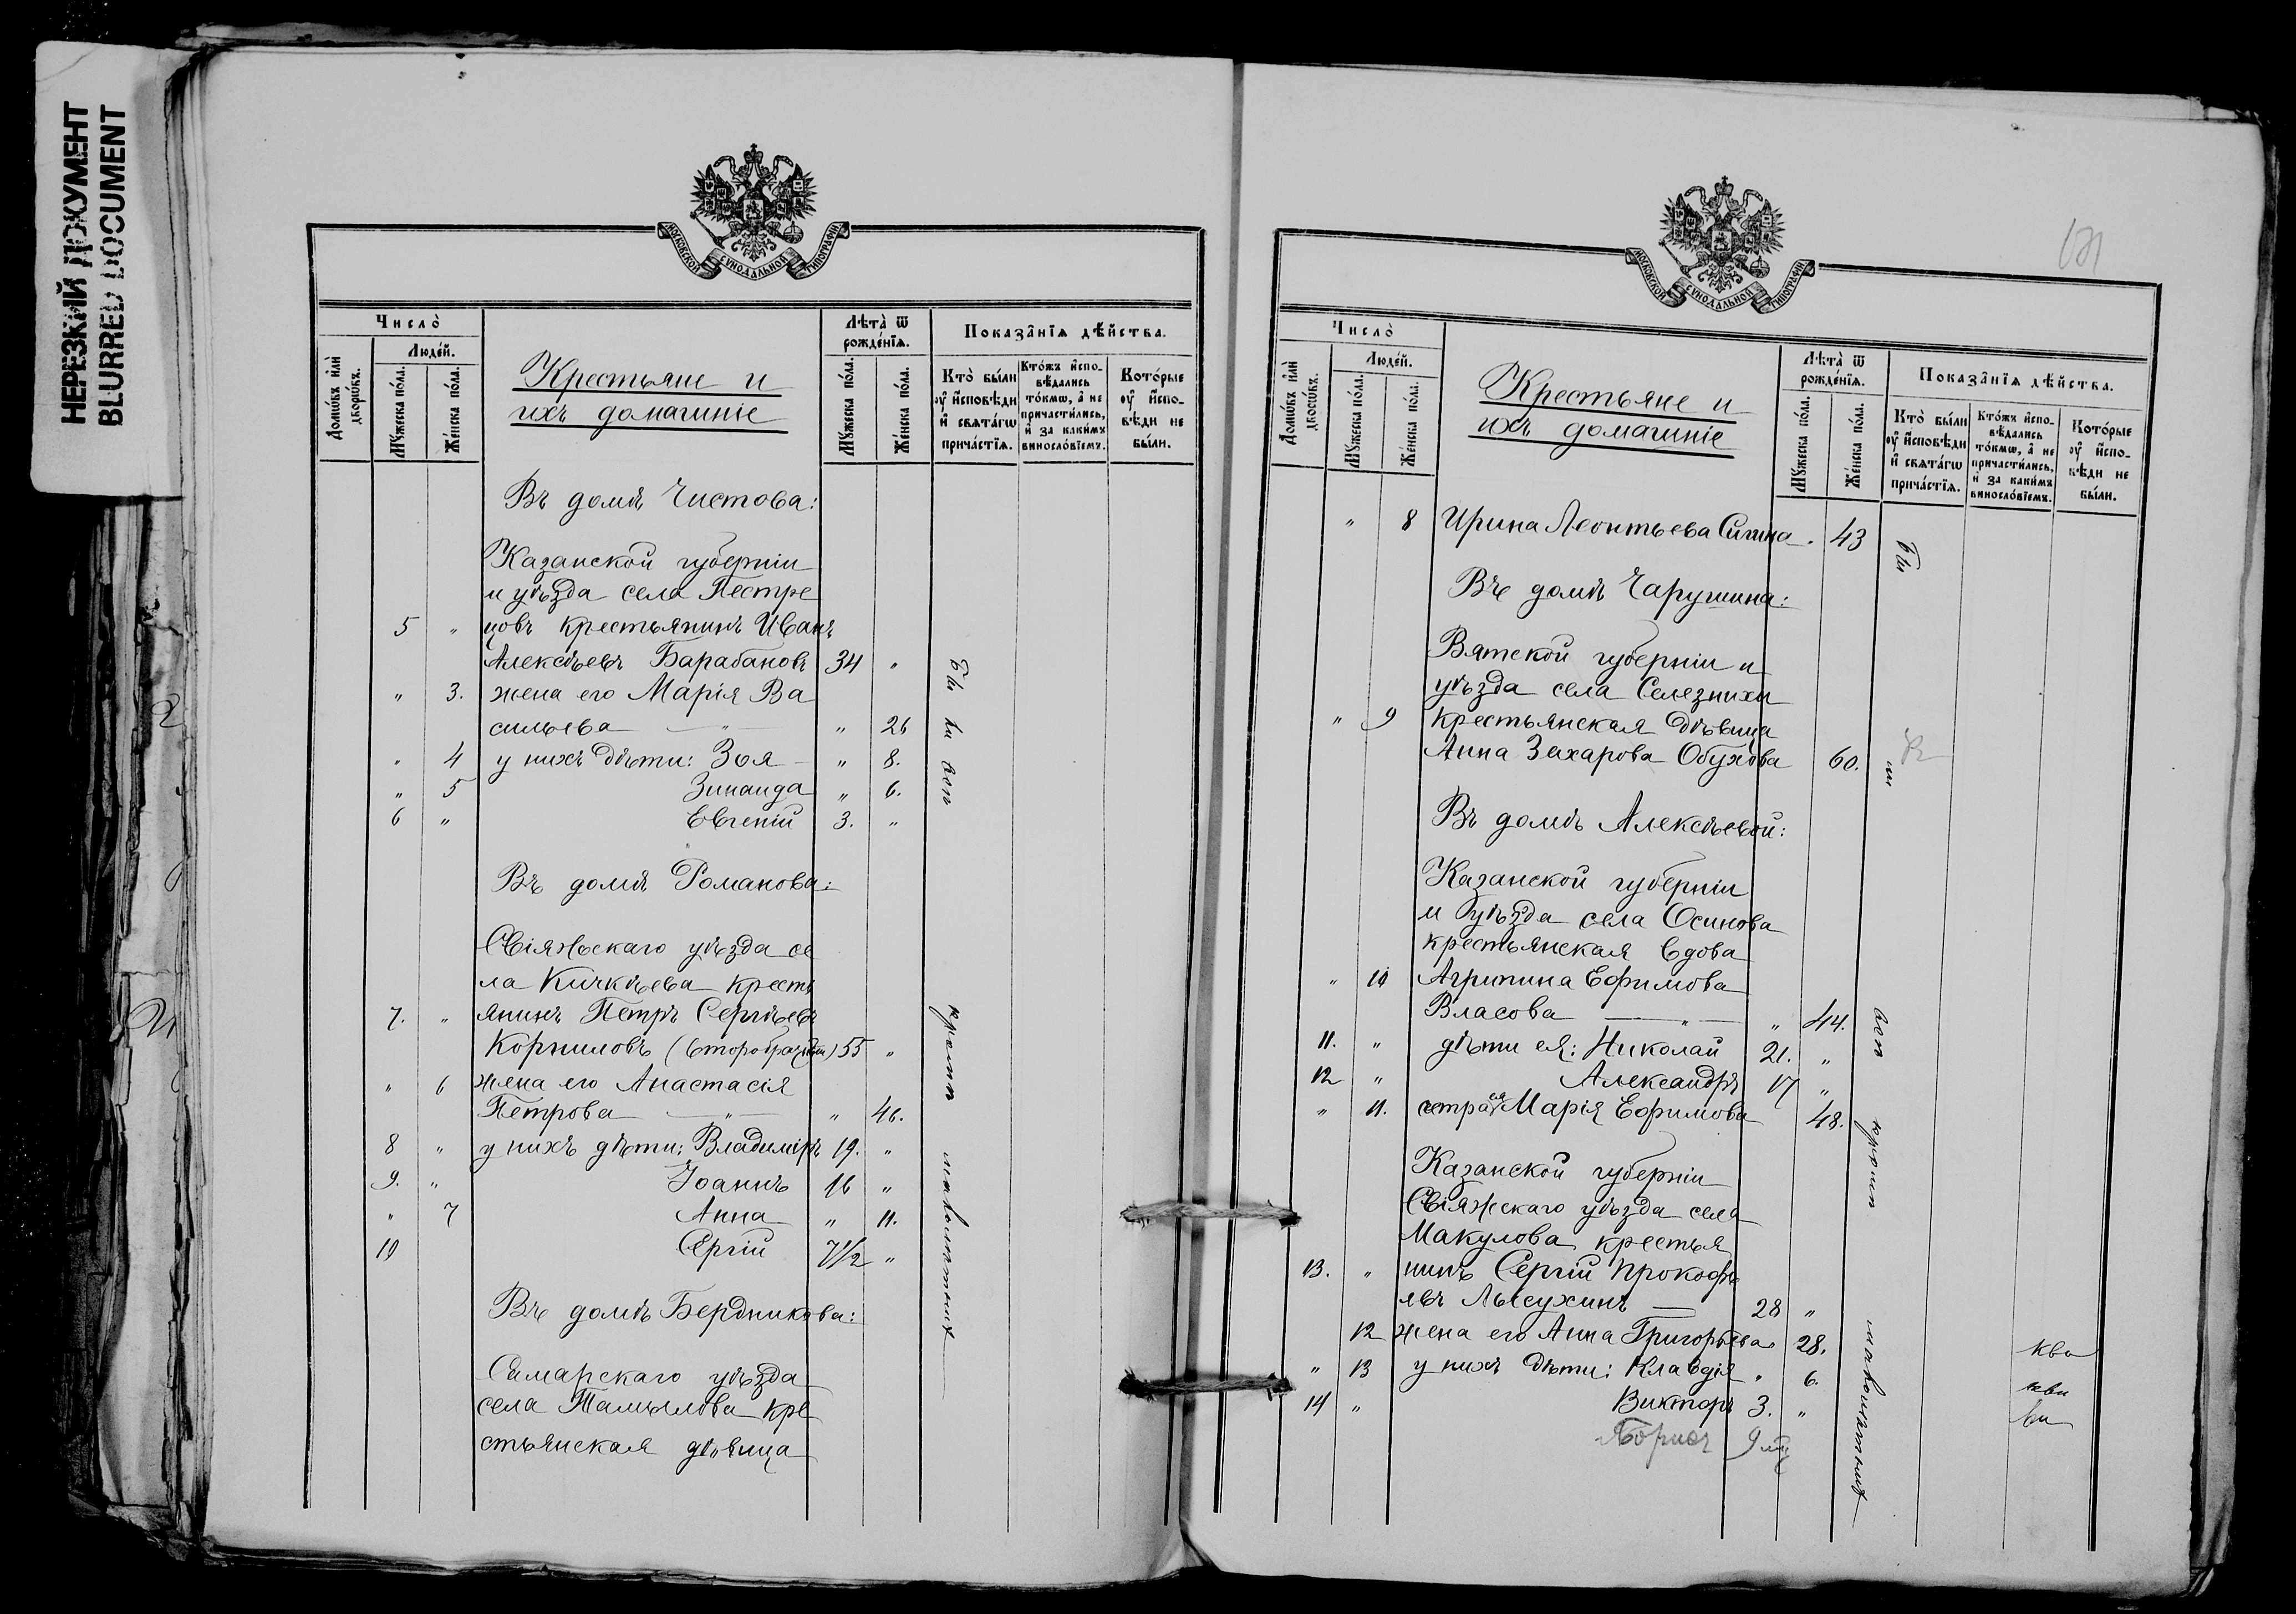 НЕРЕЗКИЙ ДОКУМЕНТ
BLURRED DOCUMENT
МОСКОВСКОЙ СѴНОДАЛЬНОЙ ТИПОГРАФІИ
Число̀
Людей.
Домѡвъ и҆лѝ дворѡвъ.
Мꙋжеска по́ла.
Же́нска по́ла.
Крестьяне и
ихъ домашніе
Лѣта̀ ѿ рожде́нїѧ.
Мꙋжеска по́ла.
Же́нска по́ла.
Показа̂нїѧ дѣ́йства.
Кто̀ бы́ли оу҆ и҆сповѣди и҆ свѧта́гѡ прича́стїѧ.
Кто́жъ и҆споВѣдались то́кмѡ, а҆ не причасти́лись, и҆ за каки́мъ винослові́емъ.
Кото́рые оу҆ и҆спо- вѣди не бы́ли.
Въ домѣ Чистова:
Казанской губерніи
и уѣзда села Пестре
5 " цовъ крестьянинъ Иванъ
Алексѣевъ Барабановъ 34 "
" 3. жена его Марія Ва
сильева — " — " 26
" 4 у нихъ дѣти: Зоя - " 8.
" 5 Зинаида " 6.
6 " Евгеній 3. "
Въ домѣ Романова:
Свіяжскаго уѣзда се
ла Кичкѣева кресть
7. " янинъ Петръ Сергѣевъ
Корниловъ (второбрачный) 55 "
" 6 жена его Анастасія
Петрова — " — " 46.
8 " у нихъ дѣти: Владиміръ 19. "
9. " Іоаннъ 16 "
" 7 Анна " 11.
10 Сергій 7½ "
Въ домѣ Бердникова:
Самарскаго уѣзда
села крe
стьянская дѣвица
МОСКОВСКОЙ СѴНОДАЛЬНОЙ ТИПОГРАФІИ
Число̀
Людей.
Домѡвъ и҆лѝ дворѡвъ.
Мꙋжеска по́ла.
Же́нска по́ла.
Крестьяне и
ихъ домашніе
Лѣта̀ ѿ рожде́нїѧ.
Мꙋжеска по́ла.
Же́нска по́ла.
Показа̂нїѧ дѣ́йства.
Кто̀ бы́ли оу҆ и҆сповѣди и҆ свѧта́гѡ прича́стїѧ.
Кто́жъ и҆спо- вѣдались то́кмѡ, а҆ не причасти́лись, и҆ за каки́мъ винослові́емъ.
Кото́рые оу҆ и҆спо- вѣди не бы́ли.
" 8 Ирина Леонтьева . 43
Въ домѣ Чарушина:
Вятской губерніи и
уѣзда села Селезнихи
" 9 крестьянская дѣвица
Анна Захарова Обухова 60.
Въ домѣ Алексѣевой:
Казанской губерніи
и уѣзда села Осинова
крестьянская вдова
" 10 Агрипина Ефимова
Власова — " — " 44.
11. " дѣти ея: Николай 21. "
12 " Александръ 17 "
" 11. сетра ея Марія Ефимова 48.
Казанской губерніи
Свіяжскаго уѣзда села
Макулова крестья
13. " нинъ Сергій Прокофь
евъ Лысухинъ — 28 "
12 жена его Анна Григорьева 28.
" 13 у нихъ дѣти: Клавдія " 6.
14 " Викторъ 3. "
Борисъ 9 мц